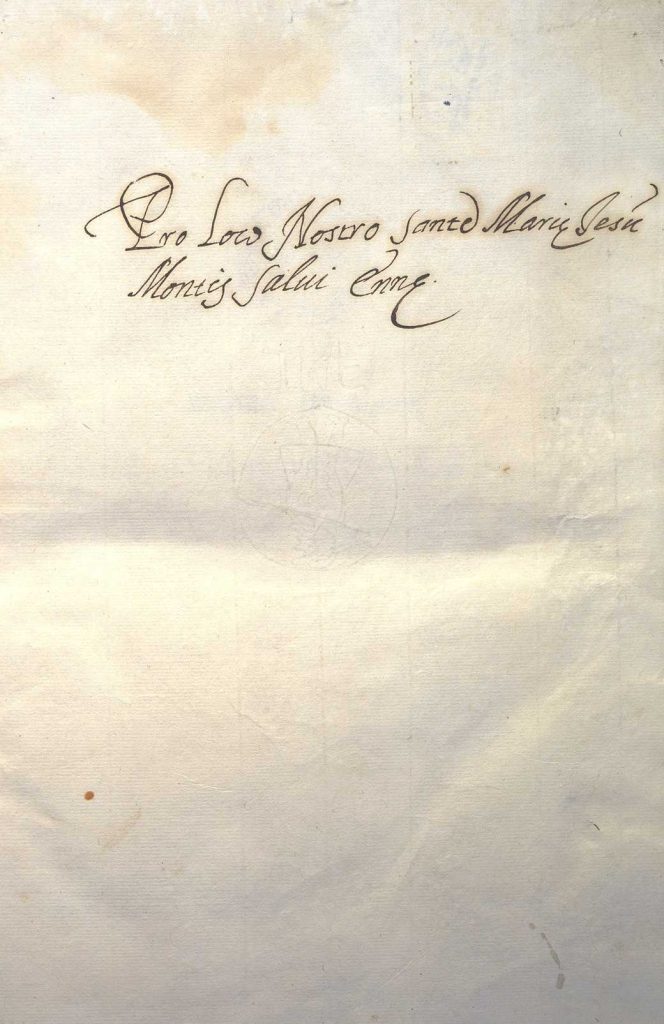 Pro Loco Nostro Sante Marię Jesu
Montis Salui Ennę.